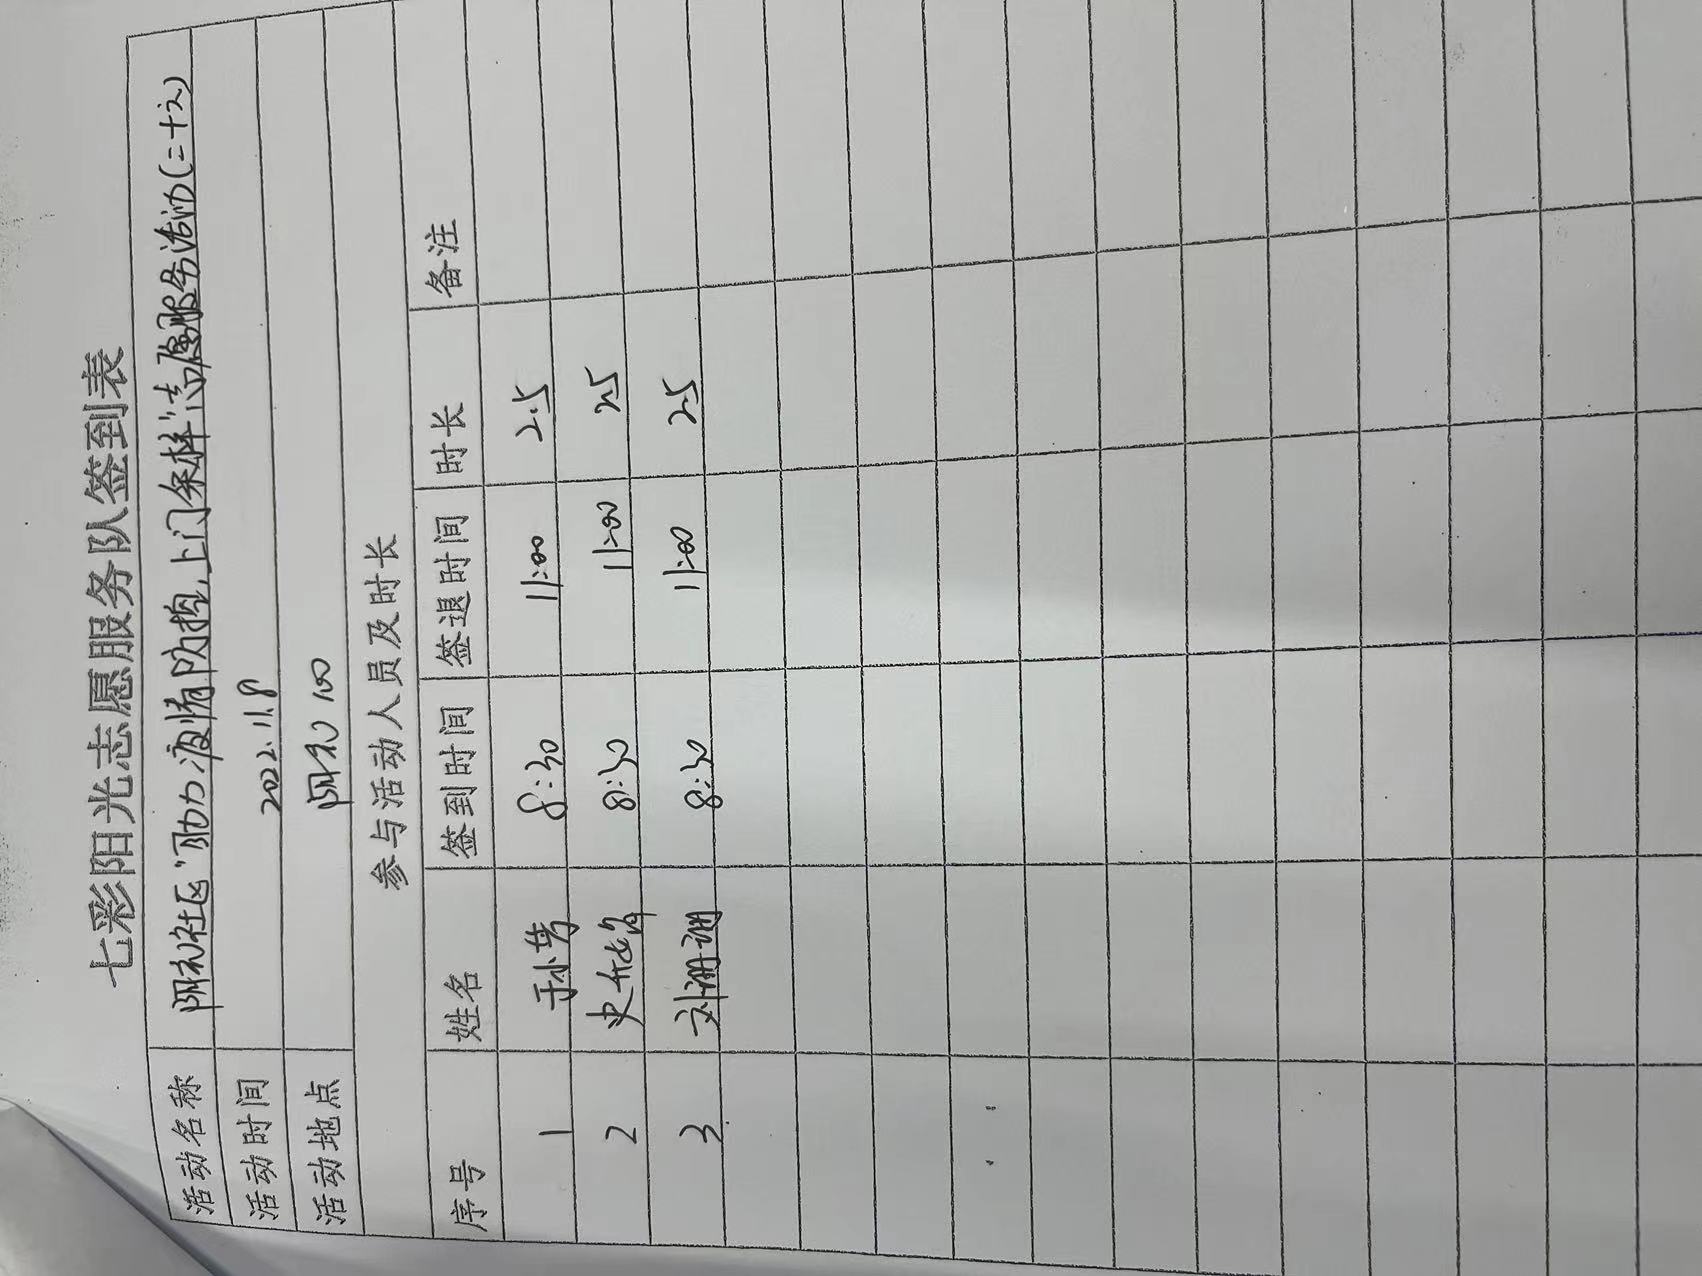 七彩阳光志愿服务队签到表
活动名称 阴和社区“助力疫情防控,上门采样”志愿服务活动(二十六)
活动时间 2022.11.8
活动地点 阴和100
参与活动人员及时长
序号 姓名 签到时间 签退时间 时长 备注
1 8:30 11:00 2.5
2 8:30 11:00 2.5
3 刘珊珊 8:30 11:00 2.5